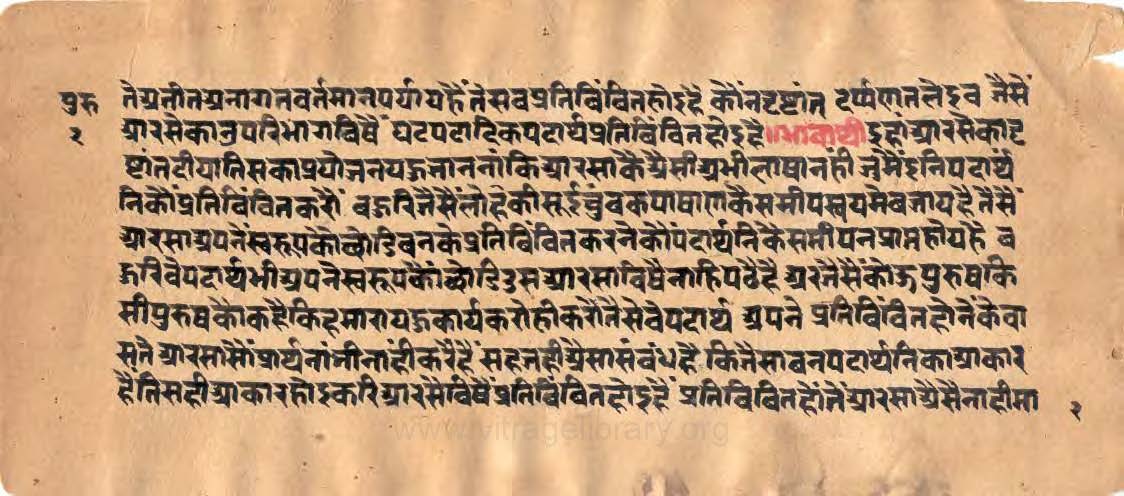 पुरु तेअतीतअनागतवर्तमानपर्यायहैं तेसवप्रतिविंवितहोइहै कौनदृष्टांत दर्प्पणतलेइव जैसें
२ आरसेकानुपरिभागविषैं घटपटादिकपदार्थप्रतिविंवितहोइहै॥भावार्थ॥इहांआरसेकादृ
ष्टांतदीयातिसकाप्रयोजनयऊजाननांकिआरसाकैअैसीअभीलाषानंही जुमैंइनिपदार्थ
निकौंप्रतिविंवितकरौं वऊरिजैसैंलोहकीसूईचुंवकपाषाणकैसमीपस्वयमेवजायहैतैसैं
आरसाअपनेंस्वरूपकोंछोडिवनकेप्रतिविंवितकरनेकौंपदार्थनिकैसमीपनप्राप्तहोयहै व
ऊरिवेपदार्थभीअपनेस्वरूपकौंछोडिउसआरसाविषैनाहिपढैहै अरजैसैंकोऊपुरुषकि
सीपुरुषकौकहैकिहमारायऊकार्यकरोहीकरौतैसेवेपदार्थ अपने प्रतिविंवितहोनेंकैवा
स्तै आरसासौंप्रार्थनांभीनांहीकरैहैं सहजहीअैसासंवंधहै किजैसावनपदार्थनिकाआकार
हैतिसहीआकारहोइकरिआरसैविषैंप्रतिविंवितहोइहैं प्रतिविंवितहोंतेंआरसाअैसैनाहीमा २
www.vitragelibrary.org